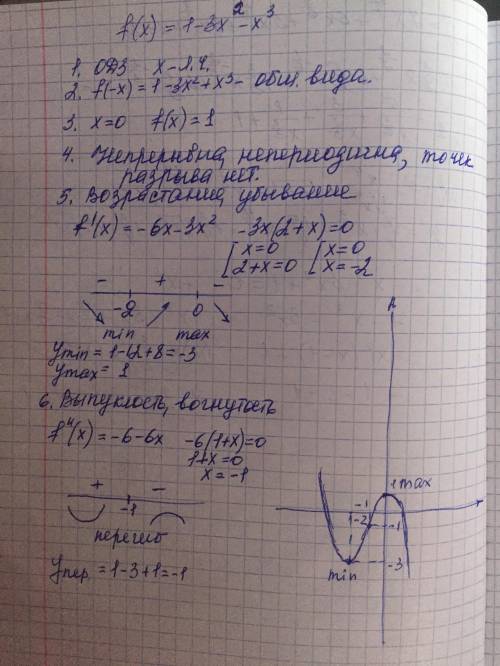 f(x) = 1-3x²-x³
1. ОДЗ x - л.ч.
2. f(-x) = 1-3x²+x³ - общ. вида.
3. x=0 f(x)=1
4. Непрерывна, непериодична, точек
разрыва нет.
5. Возрастание, убывание
f'(x) = -6x-3x² -3x(2+x)=0
[x=0 [x=0
[2+x=0 [x=-2
- + -
-2 0
min max
Ymin = 1-12+8=-3
Ymax = 1
6. Выпуклость, вогнутость
f''(x) = -6-6x -6(1+x)=0
1+x=0
x=-1
+ -
-1
перегиб
Yпер. = 1-3+1=-1
1 max
-1
-2
-1
-3
min